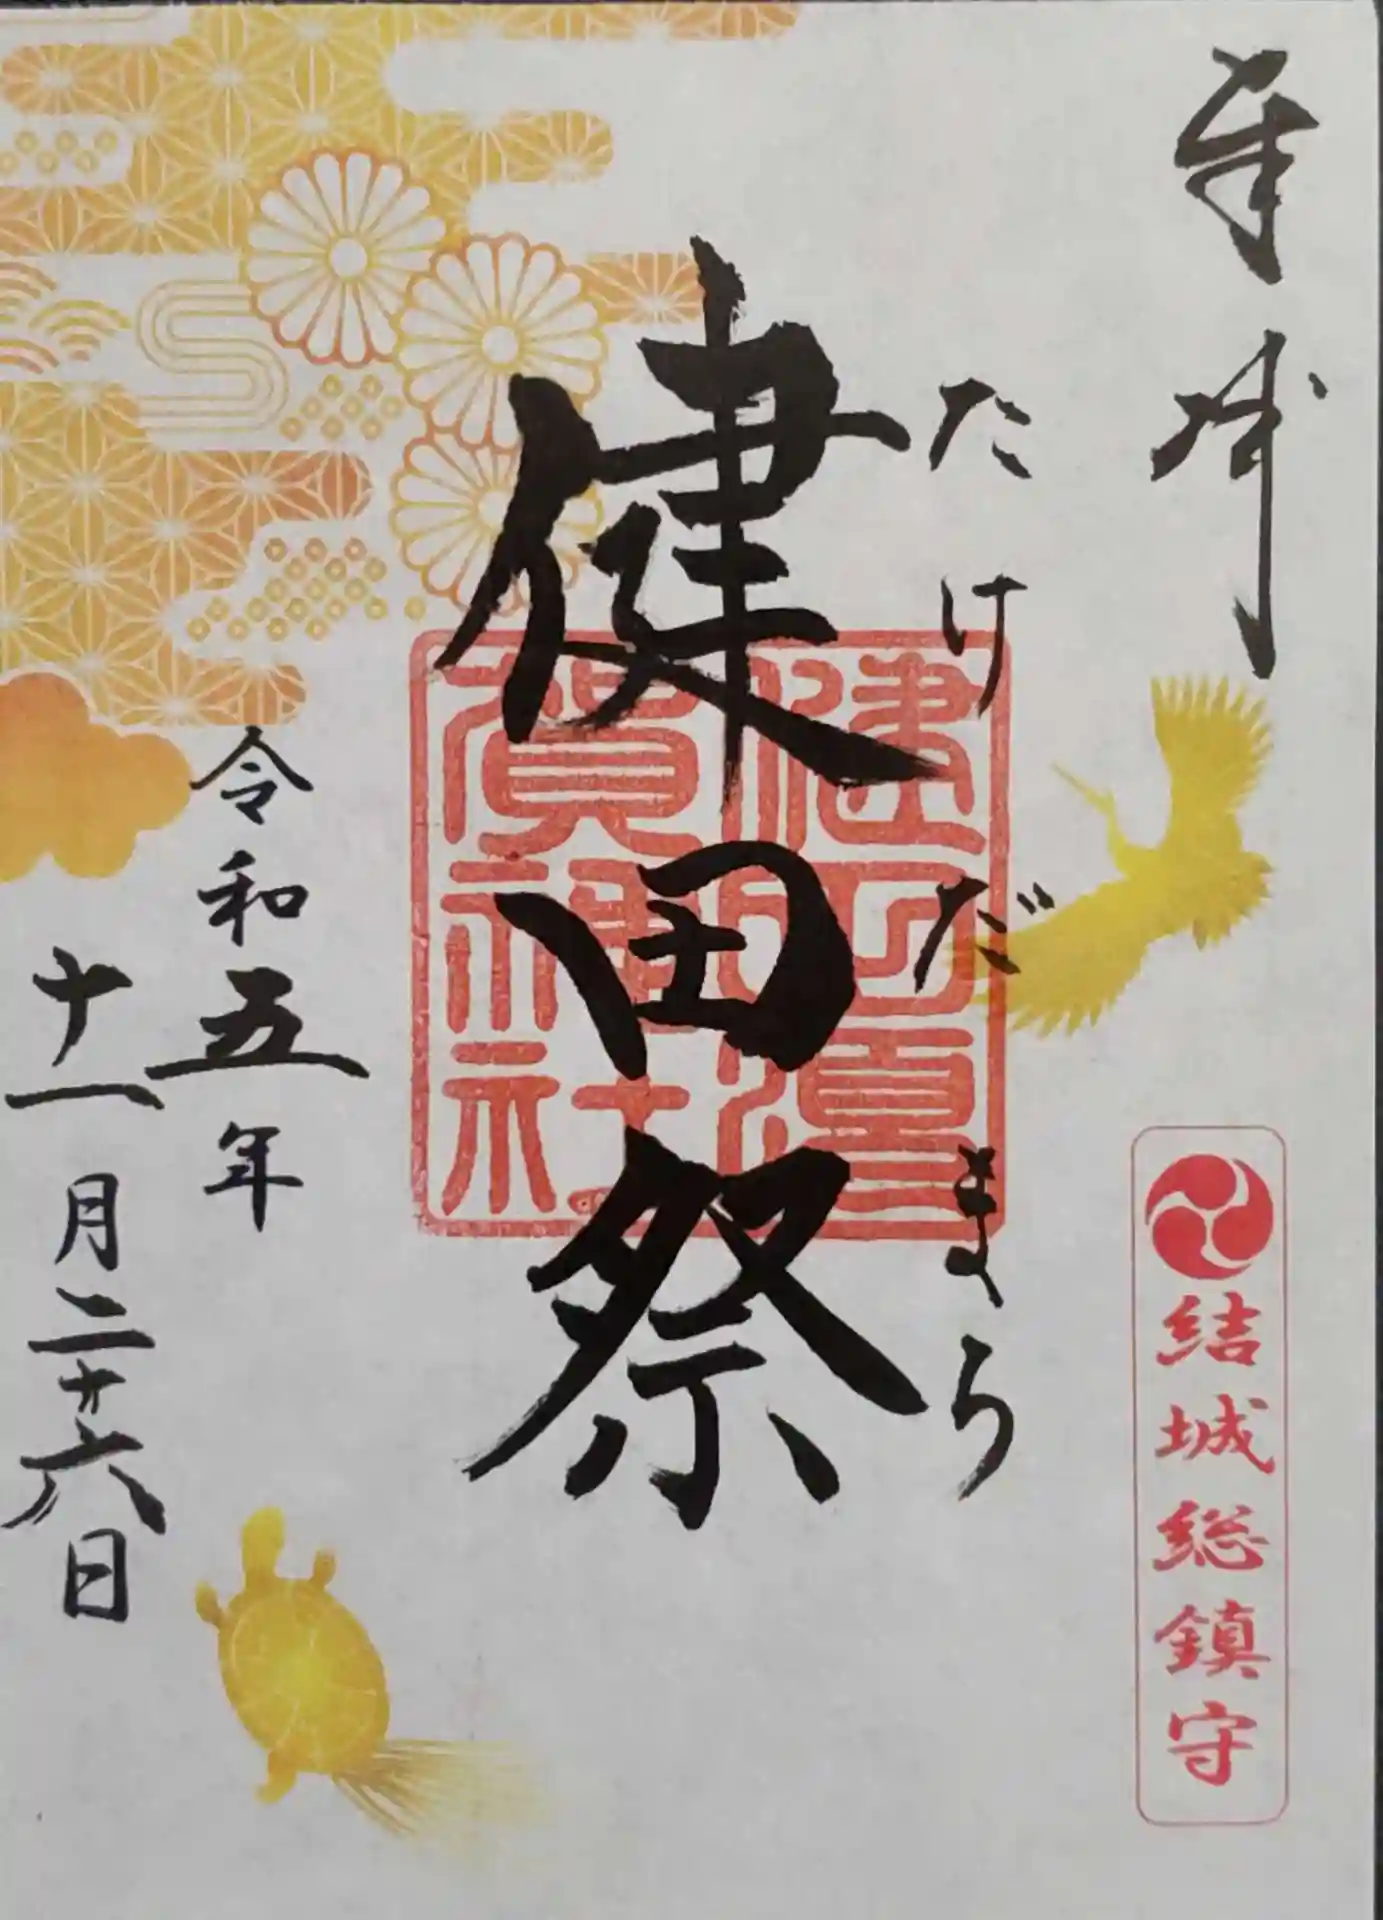 奉拝
結城総鎮守
たけだまつり
健田祭
健田須賀神社
令和五年
十一月二十六日